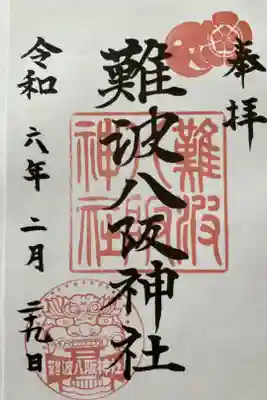 奉拝
難波八阪神社
令和六年二月二十九日
難波八阪神社
難波八阪神社